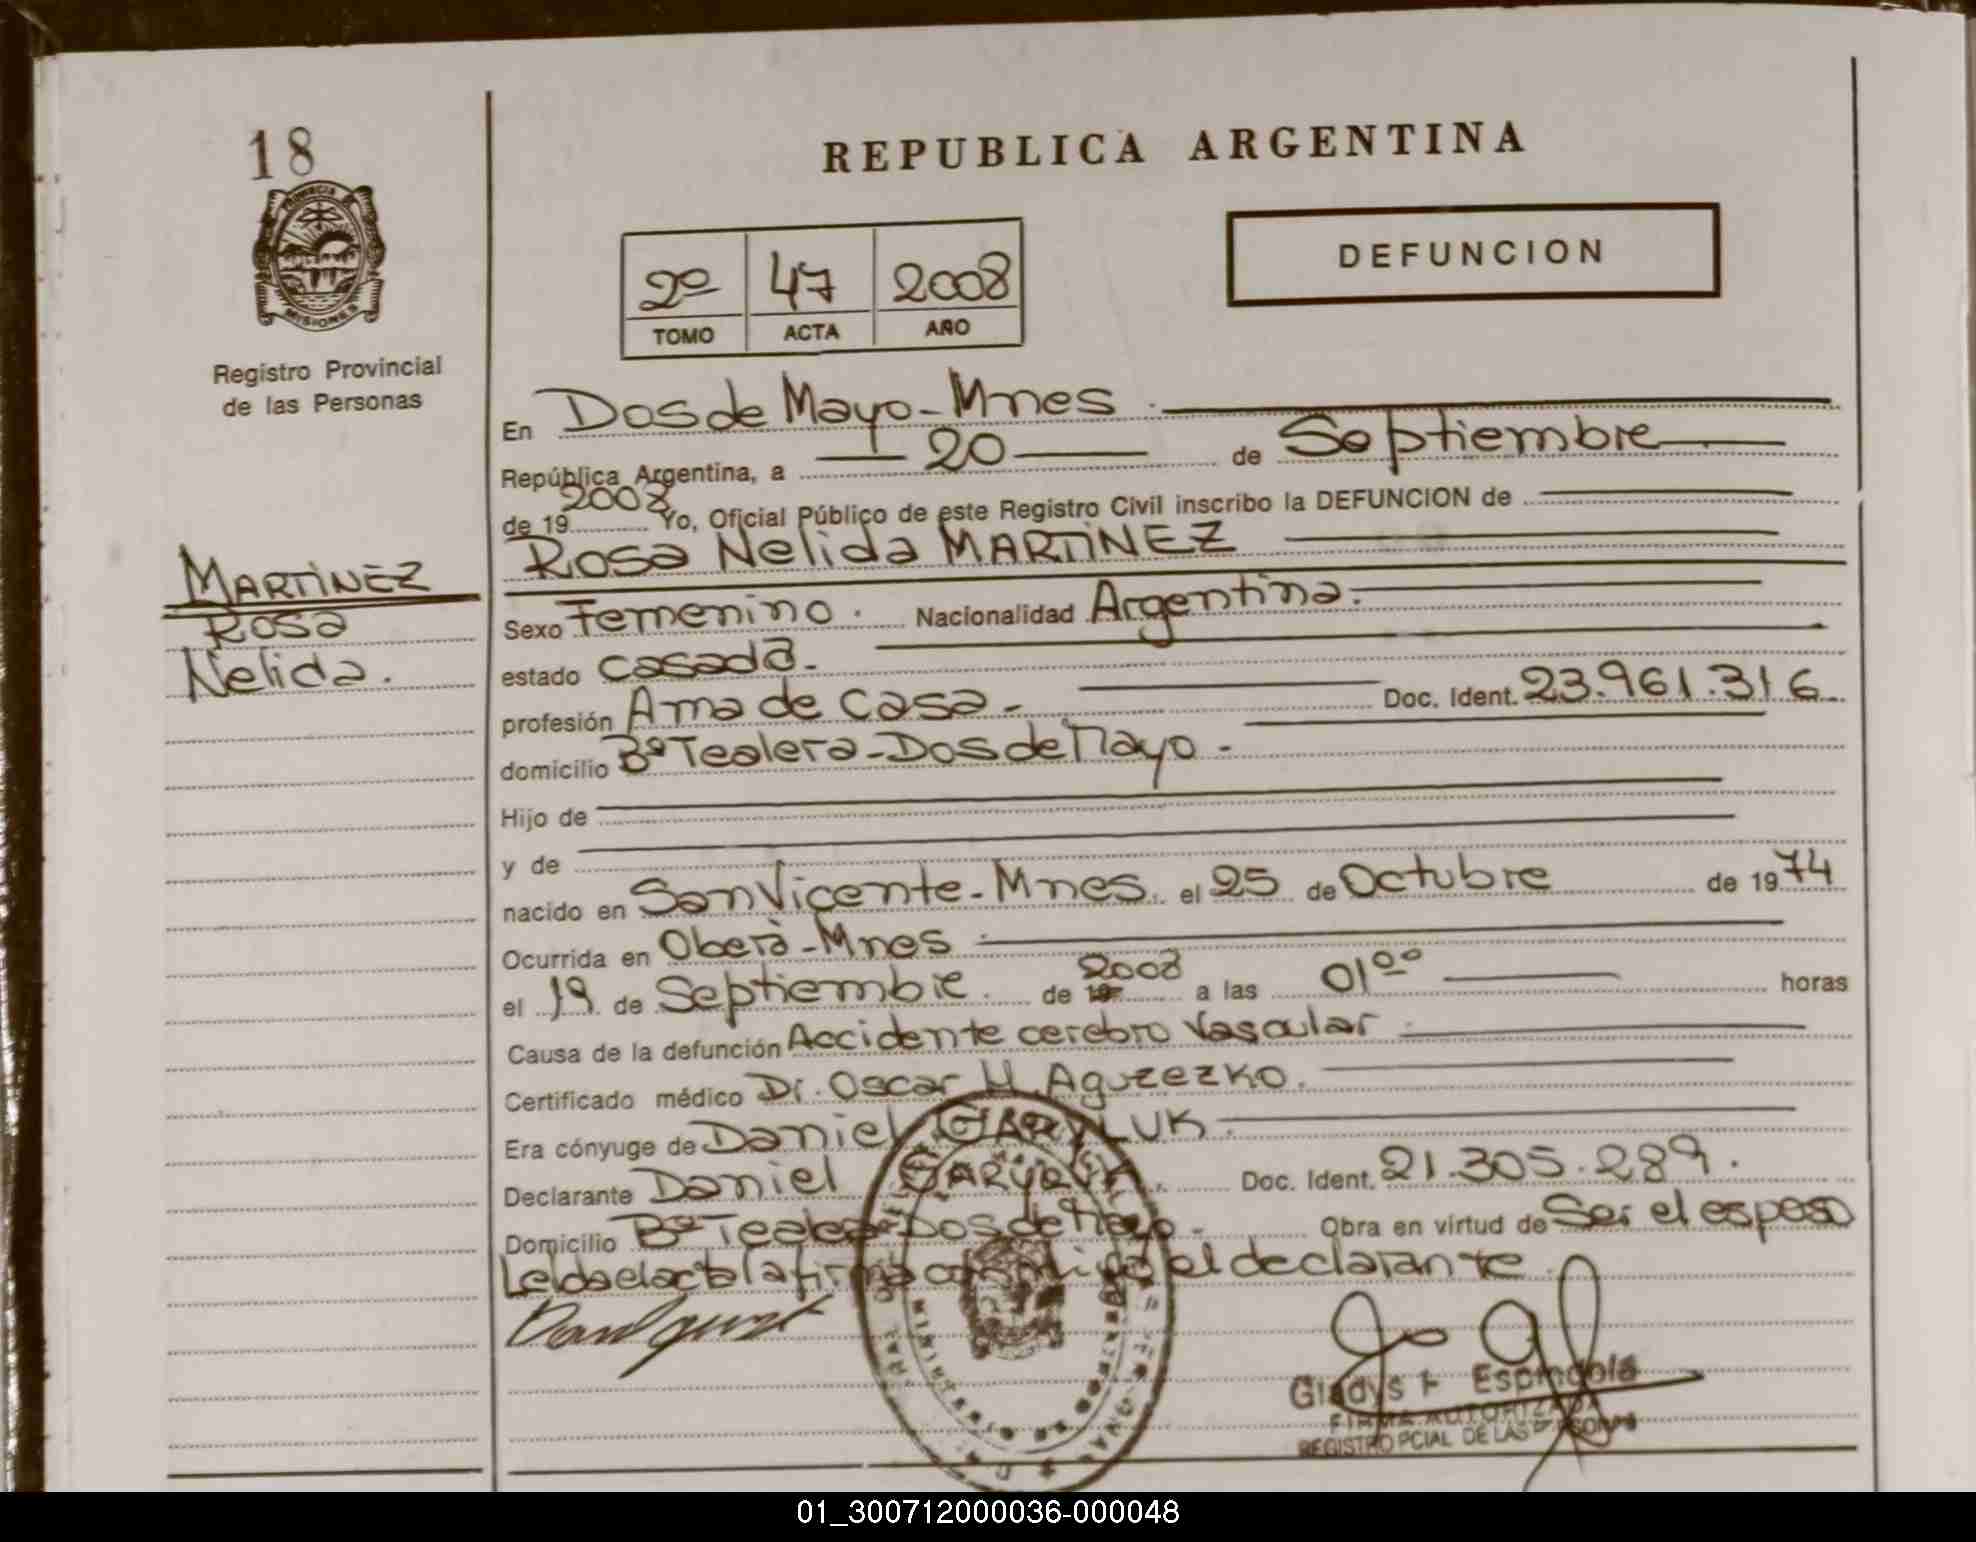 18
PROVINCIA
MISIONES
Registro Provincial
de las Personas
REPUBLICA ARGENTINA
2º 47 2008
TOMO ACTA AÑO
DEFUNCION
En Dos de Mayo-Mnes.
República Argentina, a 20 de Septiembre
de 19 2008 Yo, Oficial Público de este Registro Civil inscribo la DEFUNCION de
Rosa Nelida MARTINEZ
MARTINEZ
Rosa
Nelida.
Sexo Femenino. Nacionalidad Argentina.
estado casada.
profesión Ama de casa- Doc. Ident. 23.961.316
domicilio Bº Tealera-Dos de Mayo-
Hijo de
y de
nacido en San Vicente-Mnes. el 25 de Octubre de 1974
Ocurrida en Oberà-Mnes
el 19 de Septiembre de 19 2008 a las 01⁰⁰ horas
Causa de la defunción Accidente cerebro Vascular
Certificado médico Dr. Oscar H. Aguzezko.
Era cónyuge de Daniel GARYLUK.
Declarante Daniel GARYLUK. Doc. Ident. 21.305.289.
Domicilio Bº Tealera-Dos de Mayo- Obra en virtud de Ser el esposo
Leida el acta la firma conmigo el declarante
Gladys F Espindola
FIRMA AUTORIZADA
REGISTRO PCIAL DE LAS PERSONAS
01_300712000036-000048